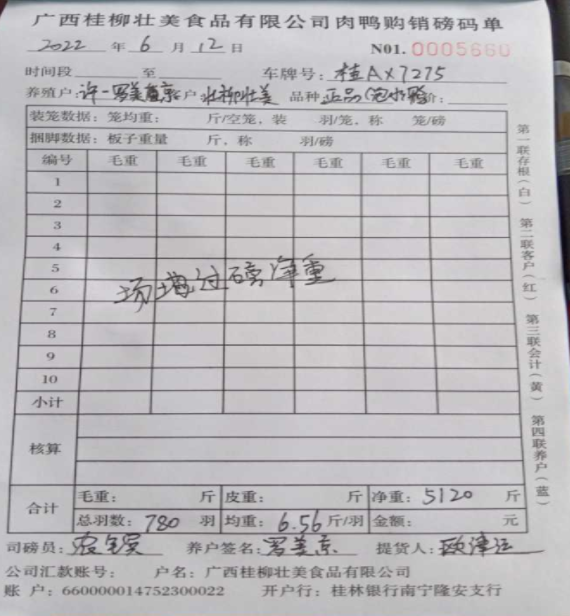 广西桂柳壮美食品有限公司肉鸭购销磅码单
2022 年 6 月 12 日 N01. 0005660
时间段 至 车牌号: 桂AX7275
养殖户: 许一罗美 客户: 壮柳壮美 品种: 正品(泡水鸭 价:
装笼数据: 笼均重: 斤/空笼, 装 羽/笼, 称 笼/磅
捆脚数据: 板子重量 斤, 称 羽/磅
编号 毛重 毛重 毛重 毛重 毛重 毛重
1
2
3
4
5
6
7
8
9
10
场地过磅净重
小计
核算
合计 毛重: 斤 皮重: 斤 净重: 5120 斤
总羽数: 780 羽 均重: 6.56 斤/羽 金额: 元
司磅员: 养户签名: 罗美京 提货人: 欧
公司汇款账号: 户名: 广西桂柳壮美食品有限公司
账 户: 660000014752300022 开户行: 桂林银行南宁隆安支行
第一联存根(白) 第二联客户(红) 第三联会计(黄) 第四联养户(蓝)